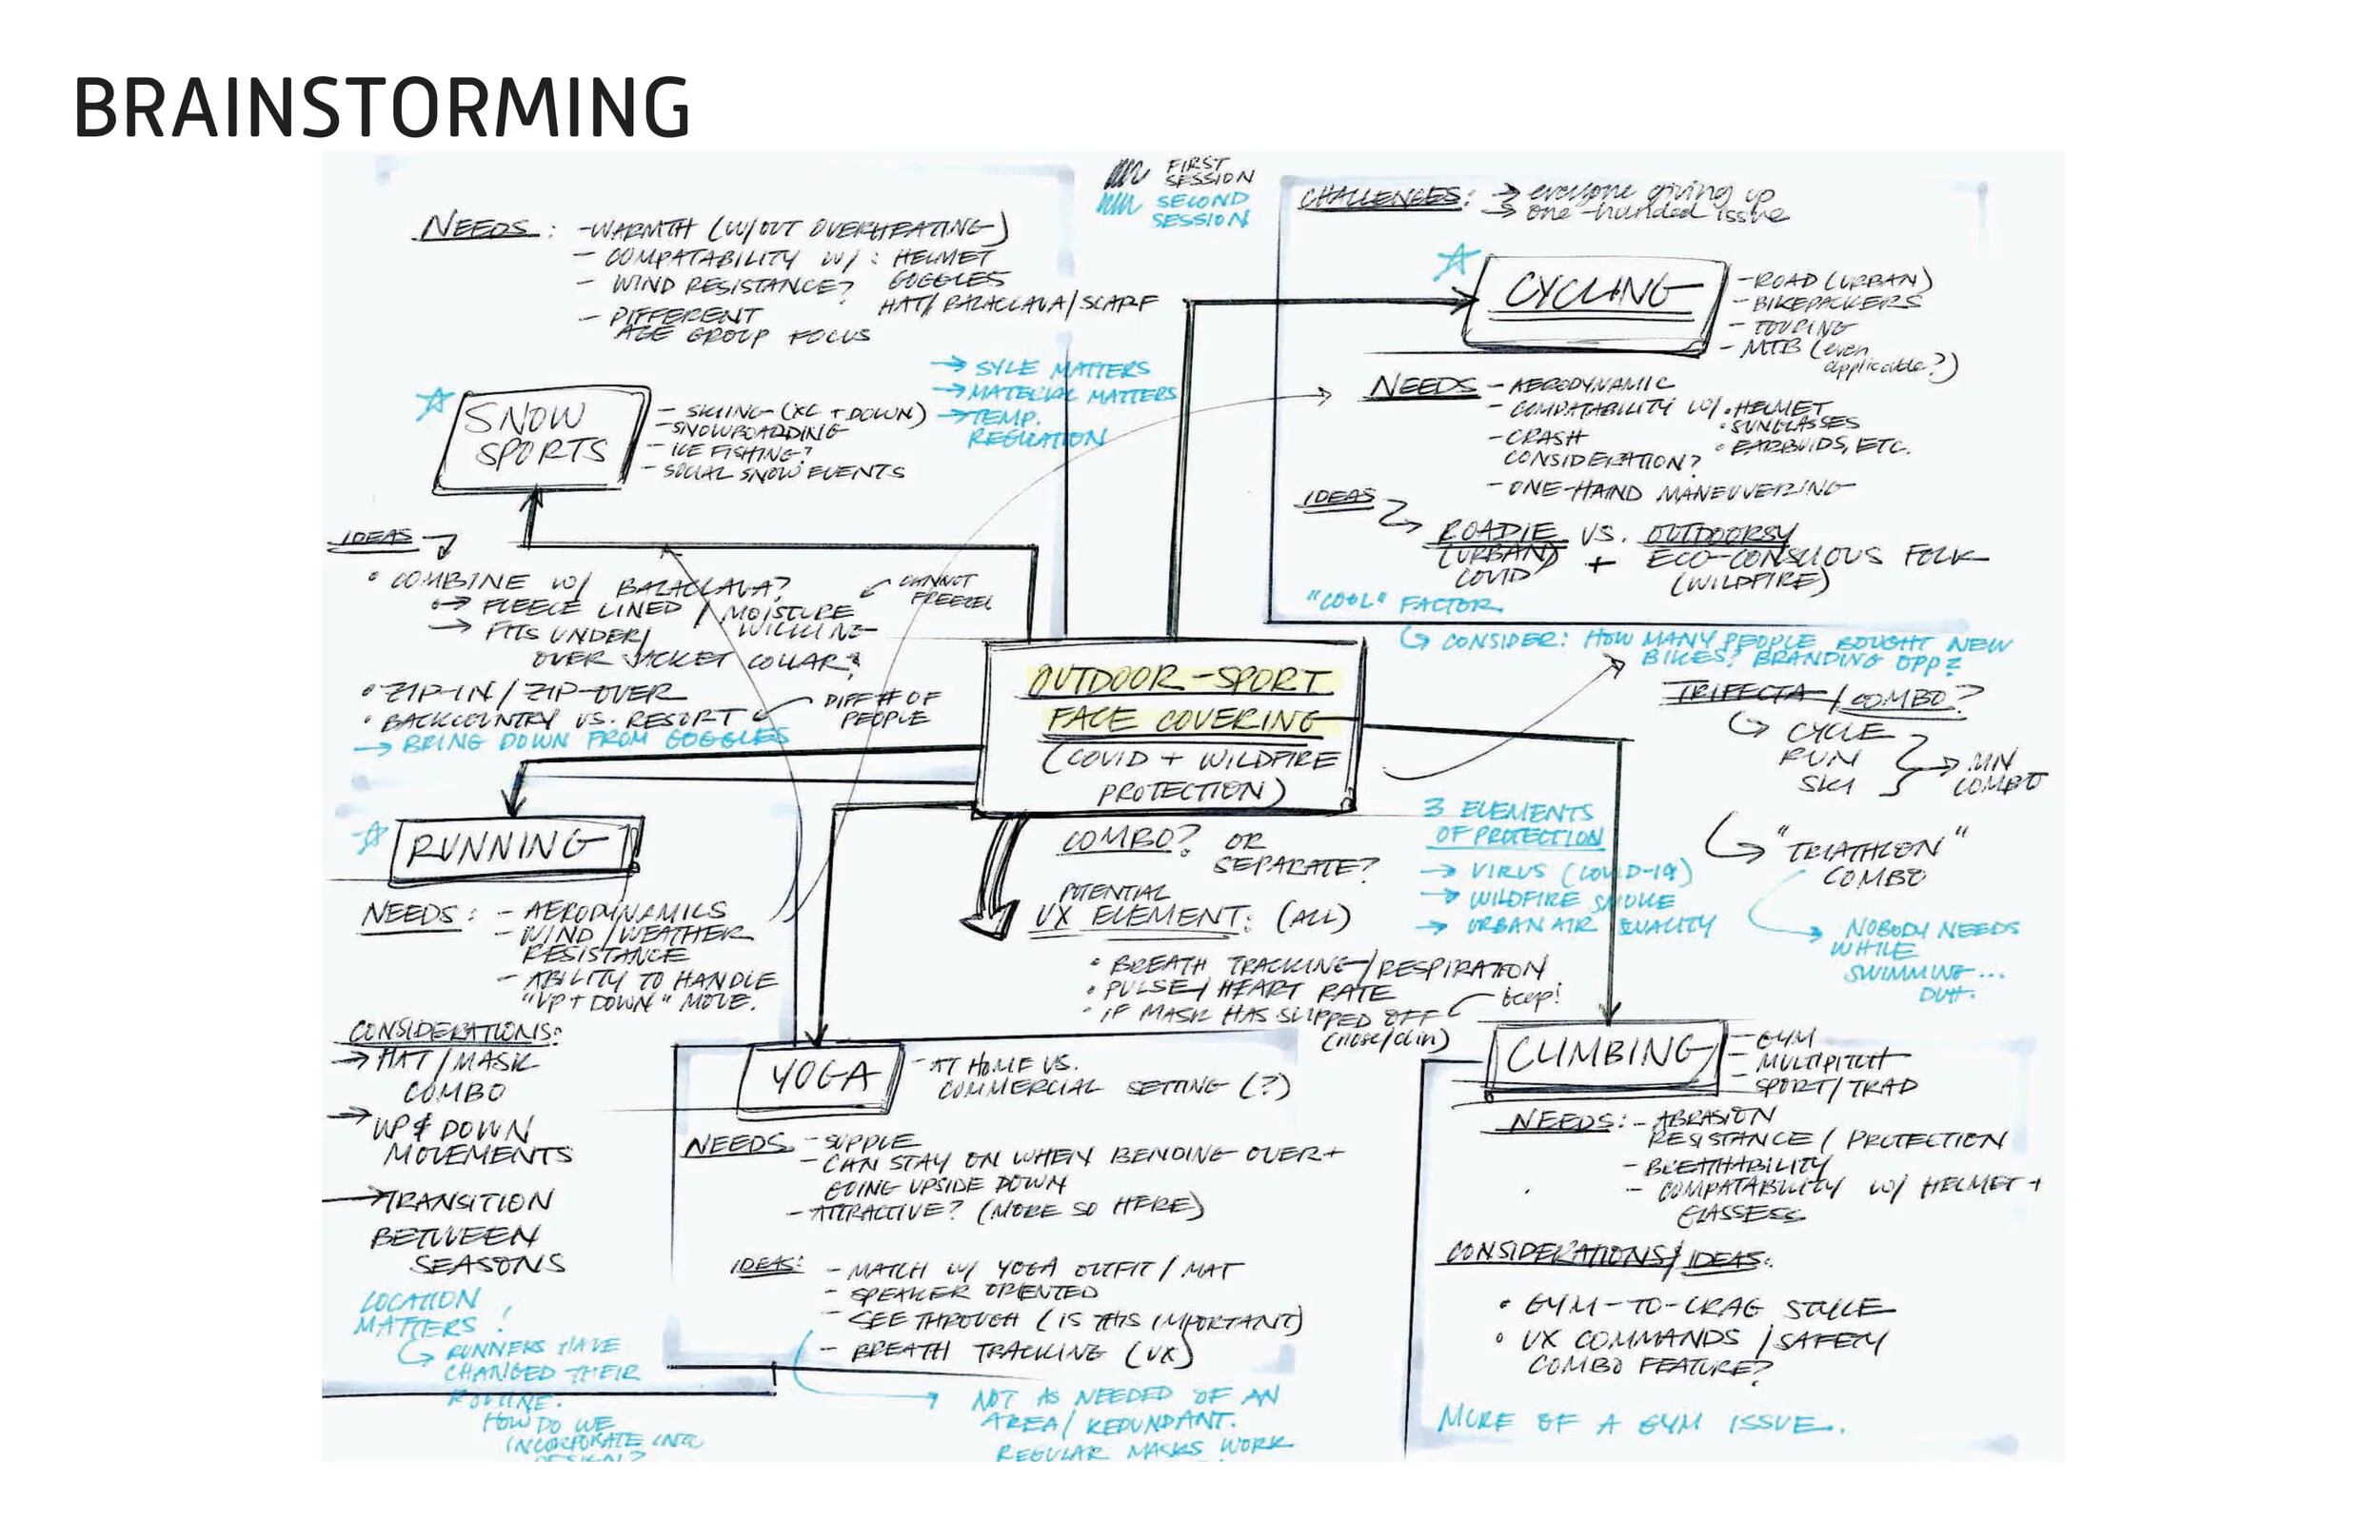 BRAINSTORMING
FIRST
SESSION
SECOND
SESSION
NEEDS: -WARMTH (W/OUT OVERHEATING)
- COMPATABILITY W/: HELMET
GOGGLES
HAT/BALACLAVA/SCARF
- WIND RESISTANCE?
- DIFFERENT
AGE GROUP FOCUS
→ SYLE MATTERS
→ MATERIAL MATTERS
→ TEMP.
REGULATION
SNOW
SPORTS
- SKIING (XC + DOWN)
- SNOWBOARDING
- ICE FISHING?
- SOCIAL SNOW EVENTS
IDEAS
• COMBINE W/ BALACLAVA?
→ FLEECE LINED / MOISTURE
WICKING
CANNOT
FREEZE!
→ FITS UNDER/
OVER JACKET COLLAR?
• ZIP-IN/ZIP-OVER
• BACKCOUNTRY VS. RESORT
DIFF # OF
PEOPLE
→ BRING DOWN FROM GOGGLES
CHALLENGES: → everyone giving up
→ one-handed issue
CYCLING
- ROAD (URBAN)
- BIKEPACKERS
- TOURING
- MTB (even
applicable?)
NEEDS - AERODYNAMIC
- COMPATABILITY W/ • HELMET
• SUNGLASSES
• EARBUDS, ETC.
- CRASH
CONSIDERATION?
- ONE-HAND MANEUVERING
IDEAS
ROADIE VS. OUTDOORSY
(URBAN) + ECO-CONSCIOUS FOLK
COVID (WILDFIRE)
"COOL" FACTOR
CONSIDER: HOW MANY PEOPLE BOUGHT NEW
BIKES? BRANDING OPP?
TRIFECTA / COMBO?
CYCLE
RUN
SKI
MN
COMBO
"TRIATHLON"
COMBO
NOBODY NEEDS
WHILE
SWIMMING...
DUH.
OUTDOOR-SPORT
FACE COVERING
(COVID + WILDFIRE
PROTECTION)
COMBO? OR
SEPARATE?
POTENTIAL
UX ELEMENT: (ALL)
• BREATH TRACKING/RESPIRATION
• PULSE/HEART RATE
• IF MASK HAS SLIPPED OFF
(nose/chin)
beep!
3 ELEMENTS
OF PROTECTION
→ VIRUS (COVID-19)
→ WILDFIRE SMOKE
→ URBAN AIR QUALITY
RUNNING
NEEDS: - AERODYNAMICS
- WIND/WEATHER
RESISTANCE
- ABILITY TO HANDLE
"UP + DOWN" MOVE.
CONSIDERATIONS:
→ HAT/MASK
COMBO
→ UP & DOWN
MOVEMENTS
→ TRANSITION
BETWEEN
SEASONS
LOCATION
MATTERS!
RUNNERS HAVE
CHANGED THEIR
ROUTINE.
HOW DO WE
INCORPORATE INTO
DESIGN?
YOGA
- AT HOME VS.
COMMERCIAL SETTING (?)
NEEDS - SUPPLE
- CAN STAY ON WHEN BENDING OVER +
GOING UPSIDE DOWN
- ATTRACTIVE? (MORE SO HERE)
IDEAS: - MATCH W/ YOGA OUTFIT/MAT
- SPEAKER ORIENTED
- SEE THROUGH (IS THIS IMPORTANT)
- BREATH TRACKING (UX)
NOT AS NEEDED OF AN
AREA/REDUNDANT.
REGULAR MASKS WORK
CLIMBING
- GYM
- MULTIPITCH
- SPORT/TRAD
NEEDS: - ABRASION
RESISTANCE/PROTECTION
- BREATHABILITY
- COMPATABILITY W/ HELMET +
GLASSESS
CONSIDERATIONS/IDEAS:
• GYM-TO-CRAG STYLE
• UX COMMANDS/SAFETY
COMBO FEATURE?
MORE OF A GYM ISSUE.